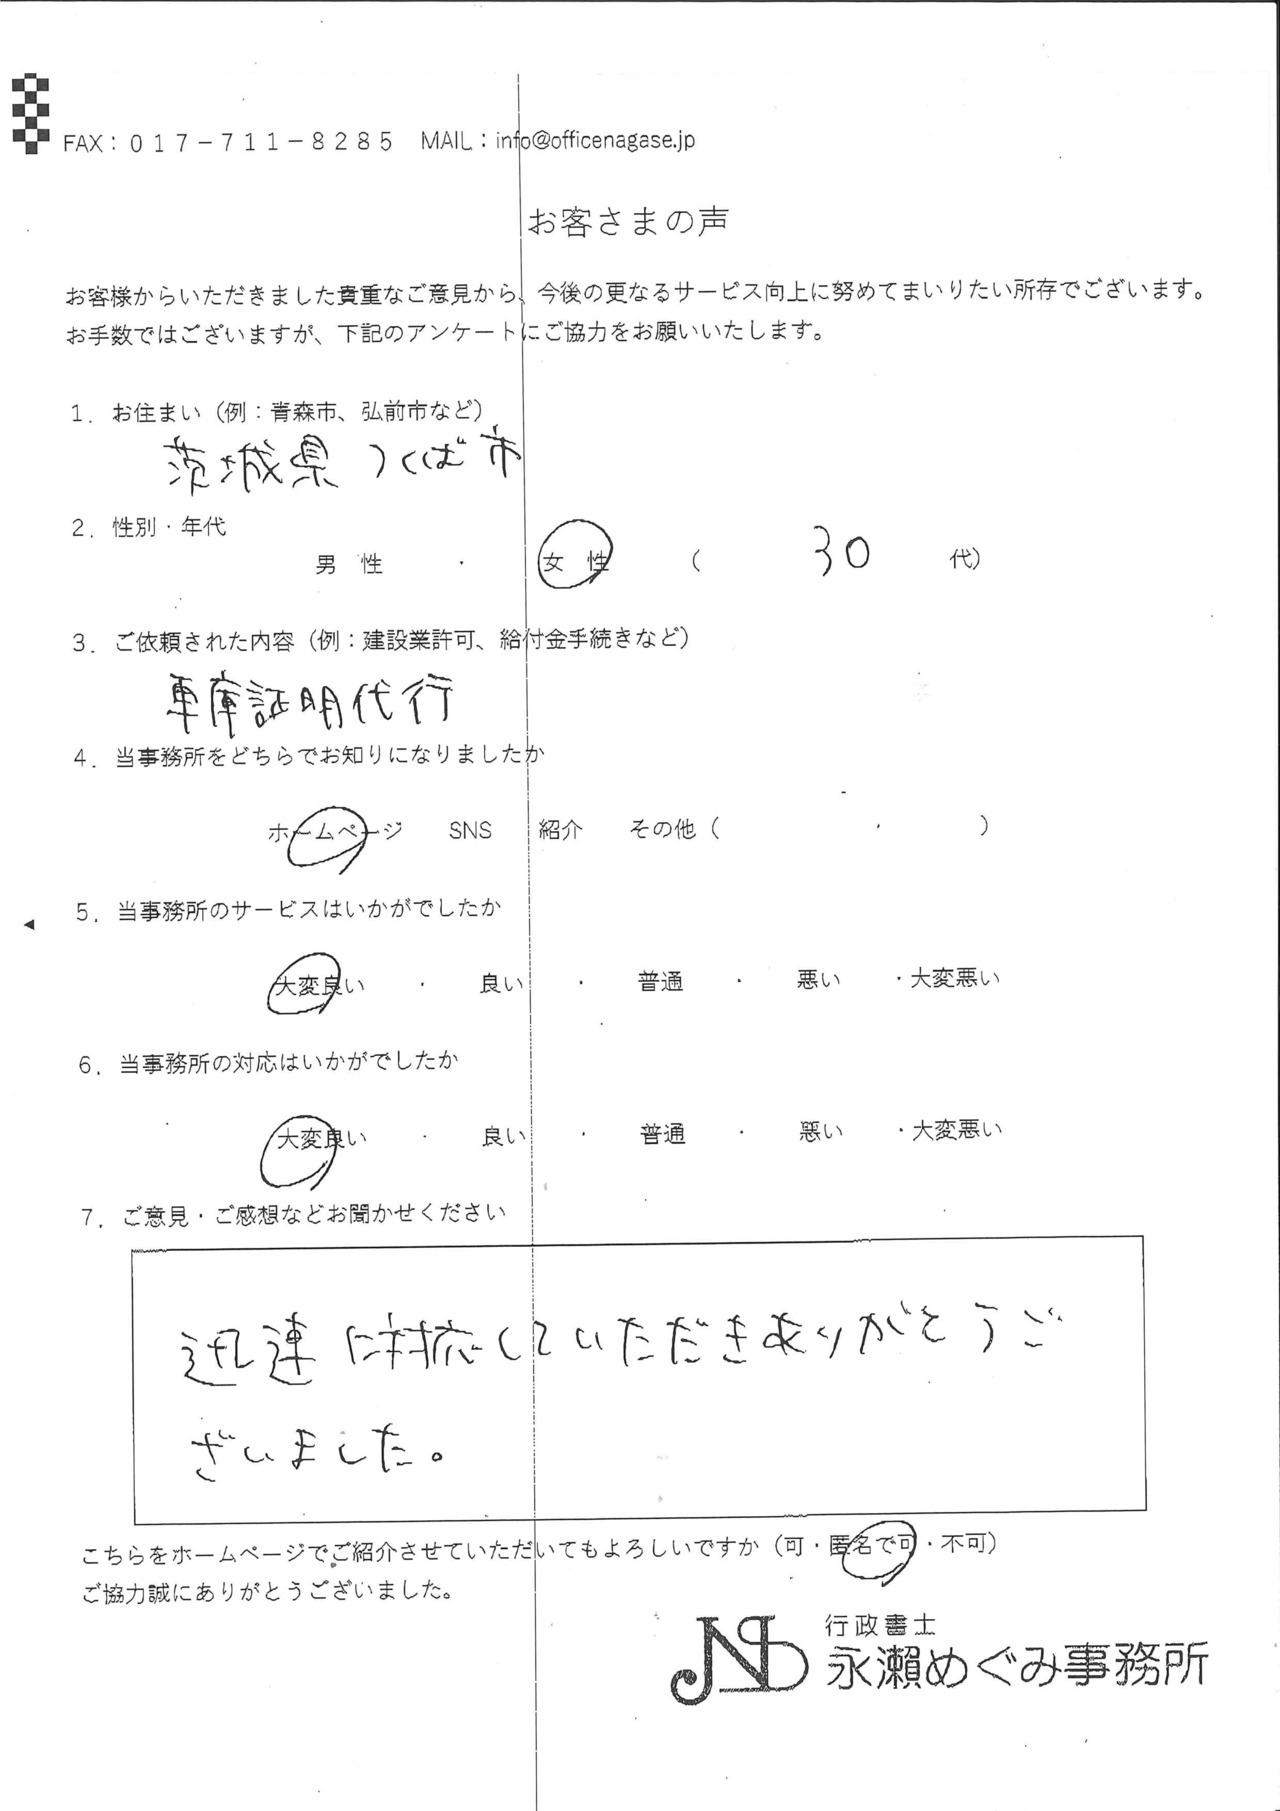 FAX：０１７－７１１－８２８５　MAIL：info@officenagase.jp
お客さまの声
お客様からいただきました貴重なご意見から、今後の更なるサービス向上に努めてまいりたい所存でございます。
お手数ではございますが、下記のアンケートにご協力をお願いいたします。
１．お住まい（例：青森市、弘前市など）
茨城県つくば市
２．性別・年代
男　性　・　女　性　（　30　代）
３．ご依頼された内容（例：建設業許可、給付金手続きなど）
車庫証明代行
４．当事務所をどちらでお知りになりましたか
ホームページ　SNS　紹介　その他（　・　）
５．当事務所のサービスはいかがでしたか
大変良い　・　良い　・　普通　・　悪い　・大変悪い
６．当事務所の対応はいかがでしたか
大変良い　・　良い　・　普通　・　悪い　・大変悪い
７．ご意見・ご感想などお聞かせください
迅速に対応していただきありがとうご
ざいました。
こちらをホームページでご紹介させていただいてもよろしいですか（可・匿名で可・不可）
ご協力誠にありがとうございました。
行政書士
永瀬めぐみ事務所